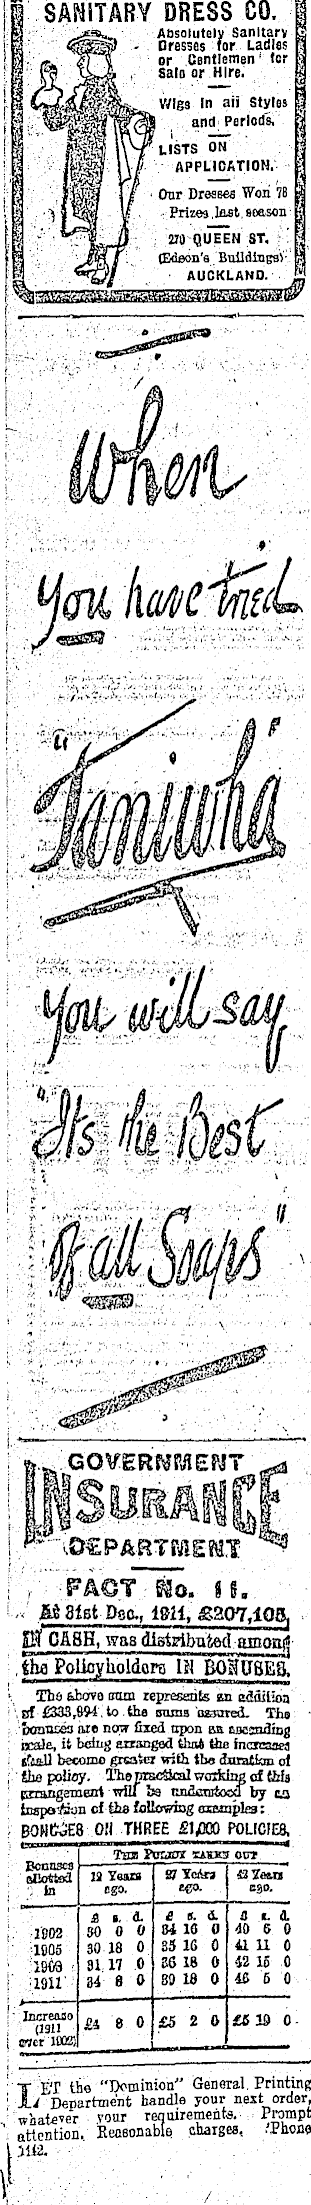 SANITARY DRESS CO.
Absolutely Sanitary
Dresses for Ladies
or Gentlemen for
Sale or Hire.
Wigs in all Styles
and Periods.
LISTS ON
APPLICATION.
Our Dresses Won 78
Prizes last season
270 QUEEN ST.
(Edson's Buildings)
AUCKLAND.
When
you have tried
"Taniwha"
You will say
"Its the Best
of all Soaps"
GOVERNMENT
INSURANCE
DEPARTMENT
FACT No. 11.
At 31st Dec., 1911, £207,105,
IN CASH, was distributed among
the Policyholders IN BONUSES.
The above sum represents an addition
of £333,894 to the sums assured. The
bonuses are now fixed upon an ascending
scale, it being arranged that the increases
shall become greater with the duration of
the policy. The practical working of this
arrangement will be understood by an
inspection of the following examples:
BONUSES ON THREE £1,000 POLICIES.
Bonuses allotted in | THE POLICY TAKEN OUT
12 Years ago. | 27 Years ago. | 42 Years ago.
£ s. d. | £ s. d. | £ s. d.
1902 | 30 0 0 | 34 16 0 | 40 6 0
1905 | 30 18 0 | 35 16 0 | 41 11 0
1908 | 31 17 0 | 36 18 0 | 42 15 0
1911 | 34 8 0 | 39 18 0 | 46 5 0
Increase (1911 over 1902) | £4 8 0 | £5 2 0 | £5 19 0
LET the "Dominion" General Printing
Department handle your next order,
whatever your requirements. Prompt
attention. Reasonable charges. 'Phone
1142.